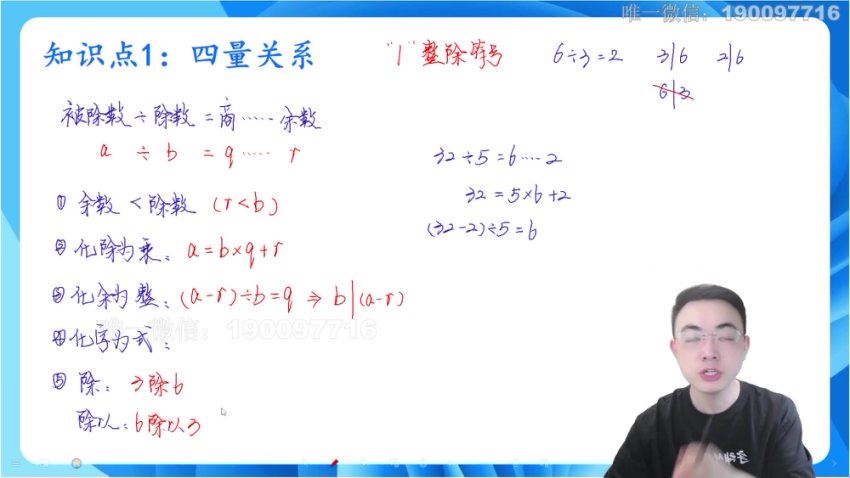 唯一微信：190097716
知识点1：四量关系
"|" 整除符号 6÷3=2 3|6 2|6
6|3
被除数÷除数=商……余数
a ÷ b = q …… r
32÷5=6……2
① 余数<除数 (r<b)
32=5×6+2
② 化除为乘：a=b×q+r
(32-2)÷5=6
③ 化余为整：(a-r)÷b=q ⇒ b|(a-r)
唯一微信：190097716
④ 化字为式：
⑤ 除：3除6
除以：6除以3